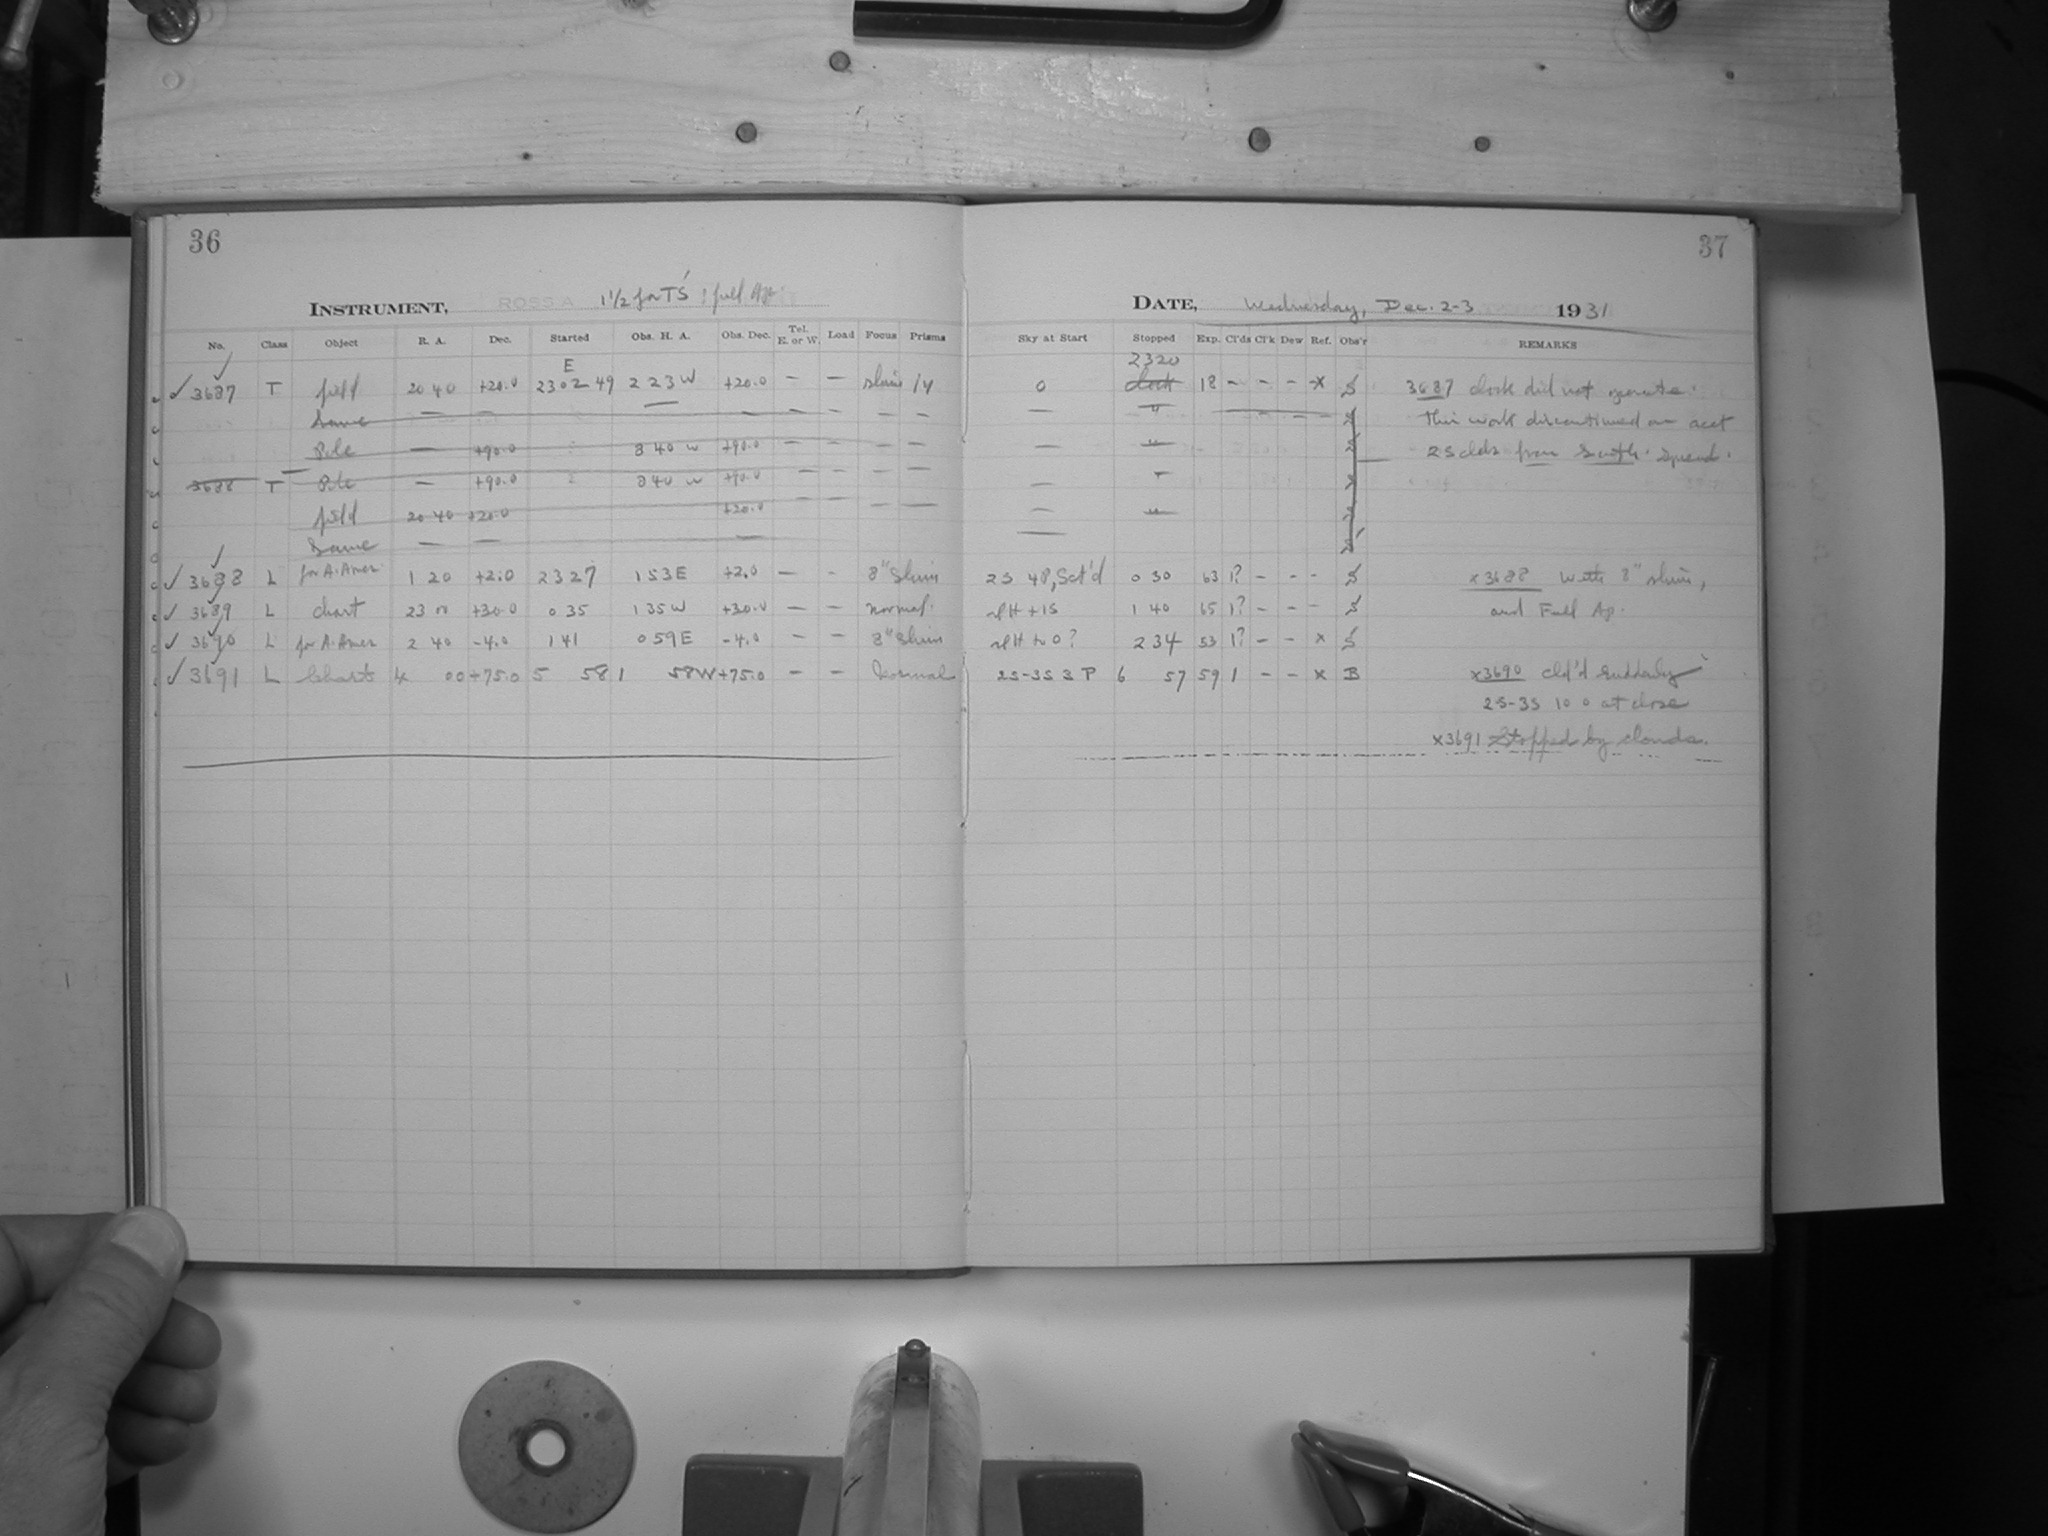 36
37
INSTRUMENT, ROSS A 1 1/2 for T'S ; full Ap.
DATE, Wednesday, Dec. 2-3 1931
No. Class Object R. A. Dec. Started Obs. H. A. Obs. Dec. Tel. E. or W. Load Focus Prisms
Sky at Start Stopped Exp. Cl'ds Cl'k Dew Ref. Obs'r REMARKS
E
2320
✓ 3687 T field 20 40 +20.0 2302 49 2 23 W +20.0 — — shim
0 clock 18 - - - x S 3687 clock did not operate.
Same — — — — — —
— " This work discontinued on acct
Pole — +90.0 8 40 W +90.0 — — — —
— " 2S clds from South. Spread.
3688 T Pole — +90.0 8 40 W +90.0 — — — —
—
field 20 40 +20.0 +20.0 — — — —
— "
Same — — —
—
✓ 3688 L for A. Amer. 1 20 +2.0 2327 1 53 E +2.0 — — 8" Shim
2S 48, Sct'd 0 30 63 1? - - - S x3688 with 8" shim,
✓ 3689 L chart 23 00 +30.0 0 35 1 35 W +30.0 — — normal.
+1S 1 40 65 1? - - - S and Full Ap.
✓ 3690 L for A. Amer 2 40 -4.0 1 41 0 59 E -4.0 — — 8" Shim
0? 2 34 53 1? - - x S
✓ 3691 L Chart 4 00 +75.0 5 58 1 58 W +75.0 — — Normal
2S-3S 3 P 6 57 59 1 - - x B x3690 Cld'd suddenly
2S-3S 10 0 at close
x3691 Stopped by clouds.